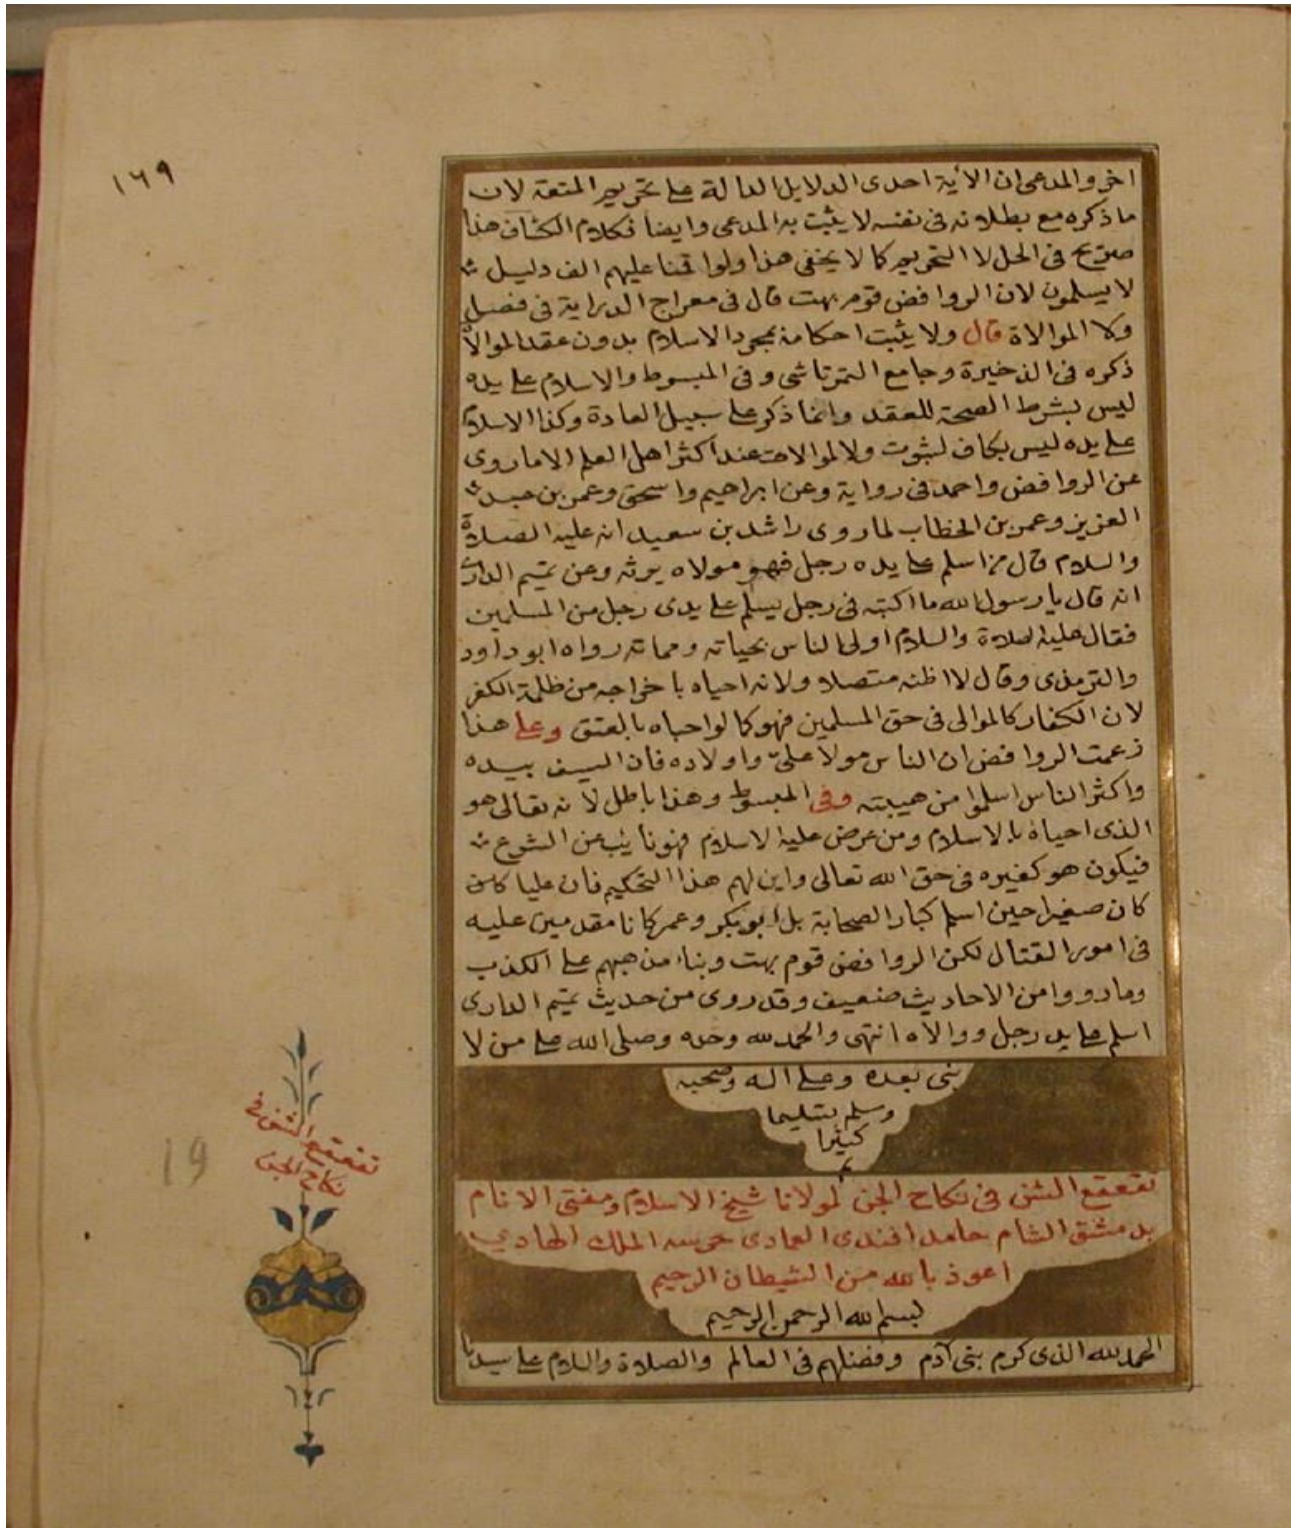 ١٦٩
اخر والمدعى ان الأية احدى الدلايل الدالة على تحريم المتعة لان
ما ذكره مع بطلانه فى نفسه لا يثبت به المدعى وايضا فكلام الكشاف هذا
صريح فى الحل لا التحريم كما لا يخفى هذا ولو اقمنا عليهم الف دليل
لا يسلمون لان الروافض قوم بهت قال فى معراج الدراية فى فصل
ولا الموالاة قال ولا يثبت احكامه بمجرد الاسلام بدون عقد الموالاة
ذكره فى الذخيرة وجامع التمرتاشى وفى المبسوط والاسلام على يده
ليس بشرط الصحة للعقد وانما ذكر على سبيل العادة وكذا الاسلام
على يده ليس بكاف لثبوت ولا الموالات عند اكثر اهل العلم الا ما روى
عن الروافض واحمد فى رواية وعن ابراهيم واسحق وعمر بن عبد
العزيز وعمر بن الخطاب لما روى راشد بن سعيد انه عليه الصلاة
والسلام قال من اسلم على يده رجل فهو مولاه يرثه وعن تميم الدارى
انه قال يا رسول الله ما السنة فى رجل يسلم على يدى رجل من المسلمين
فقال عليه الصلاة والسلام اولى الناس بحياته ومماته رواه ابو داود
والترمذى وقال لا اظنه متصلا ولانه احياه باخراجه من ظلمة الكفر
لان الكفار كالموالى فى حق المسلمين فهو كما لو احياه بالعتق وعلى هذا
زعمت الروافض ان الناس مولا علىّ واولاده فان السيف بيده
واكثر الناس اسلموا من هيبته وفى المبسوط وهذا باطل لانه تعالى هو
الذى احياه بالاسلام ومن عرض عليه الاسلام فهو نايب عن الشرع
فيكون هو كغيره فى حق الله تعالى واين لهم هذا التحكيم فان عليا كان
كان صغيرا حين اسلم كبار الصحابة بل ابو بكر وعمر كانا مقدمين عليه
فى امور القتال لكن الروافض قوم بهت وبناء مذهبهم على الكذب
وما رووا من الاحاديث ضعيف وقد روى من حديث تميم الدارى
اسلم على يد رجل ووالاه انتهى والحمد لله وحده وصلى الله على من لا
نبى بعده وعلى اله وصحبه
وسلم تسليما
كثيرا
تقعقع الشن فى نكاح الجن لمولانا شيخ الاسلام ومفتى الانام
بدمشق الشام حامد افندى العمادى حرسه الملك الهادي
اعوذ بالله من الشيطان الرجيم
بسم الله الرحمن الرحيم
الحمد لله الذى كرم بنى آدم وفضلهم فى العالم والصلاة والسلام على سيدنا
تقعقع الشن فى
نكاح الجن
19